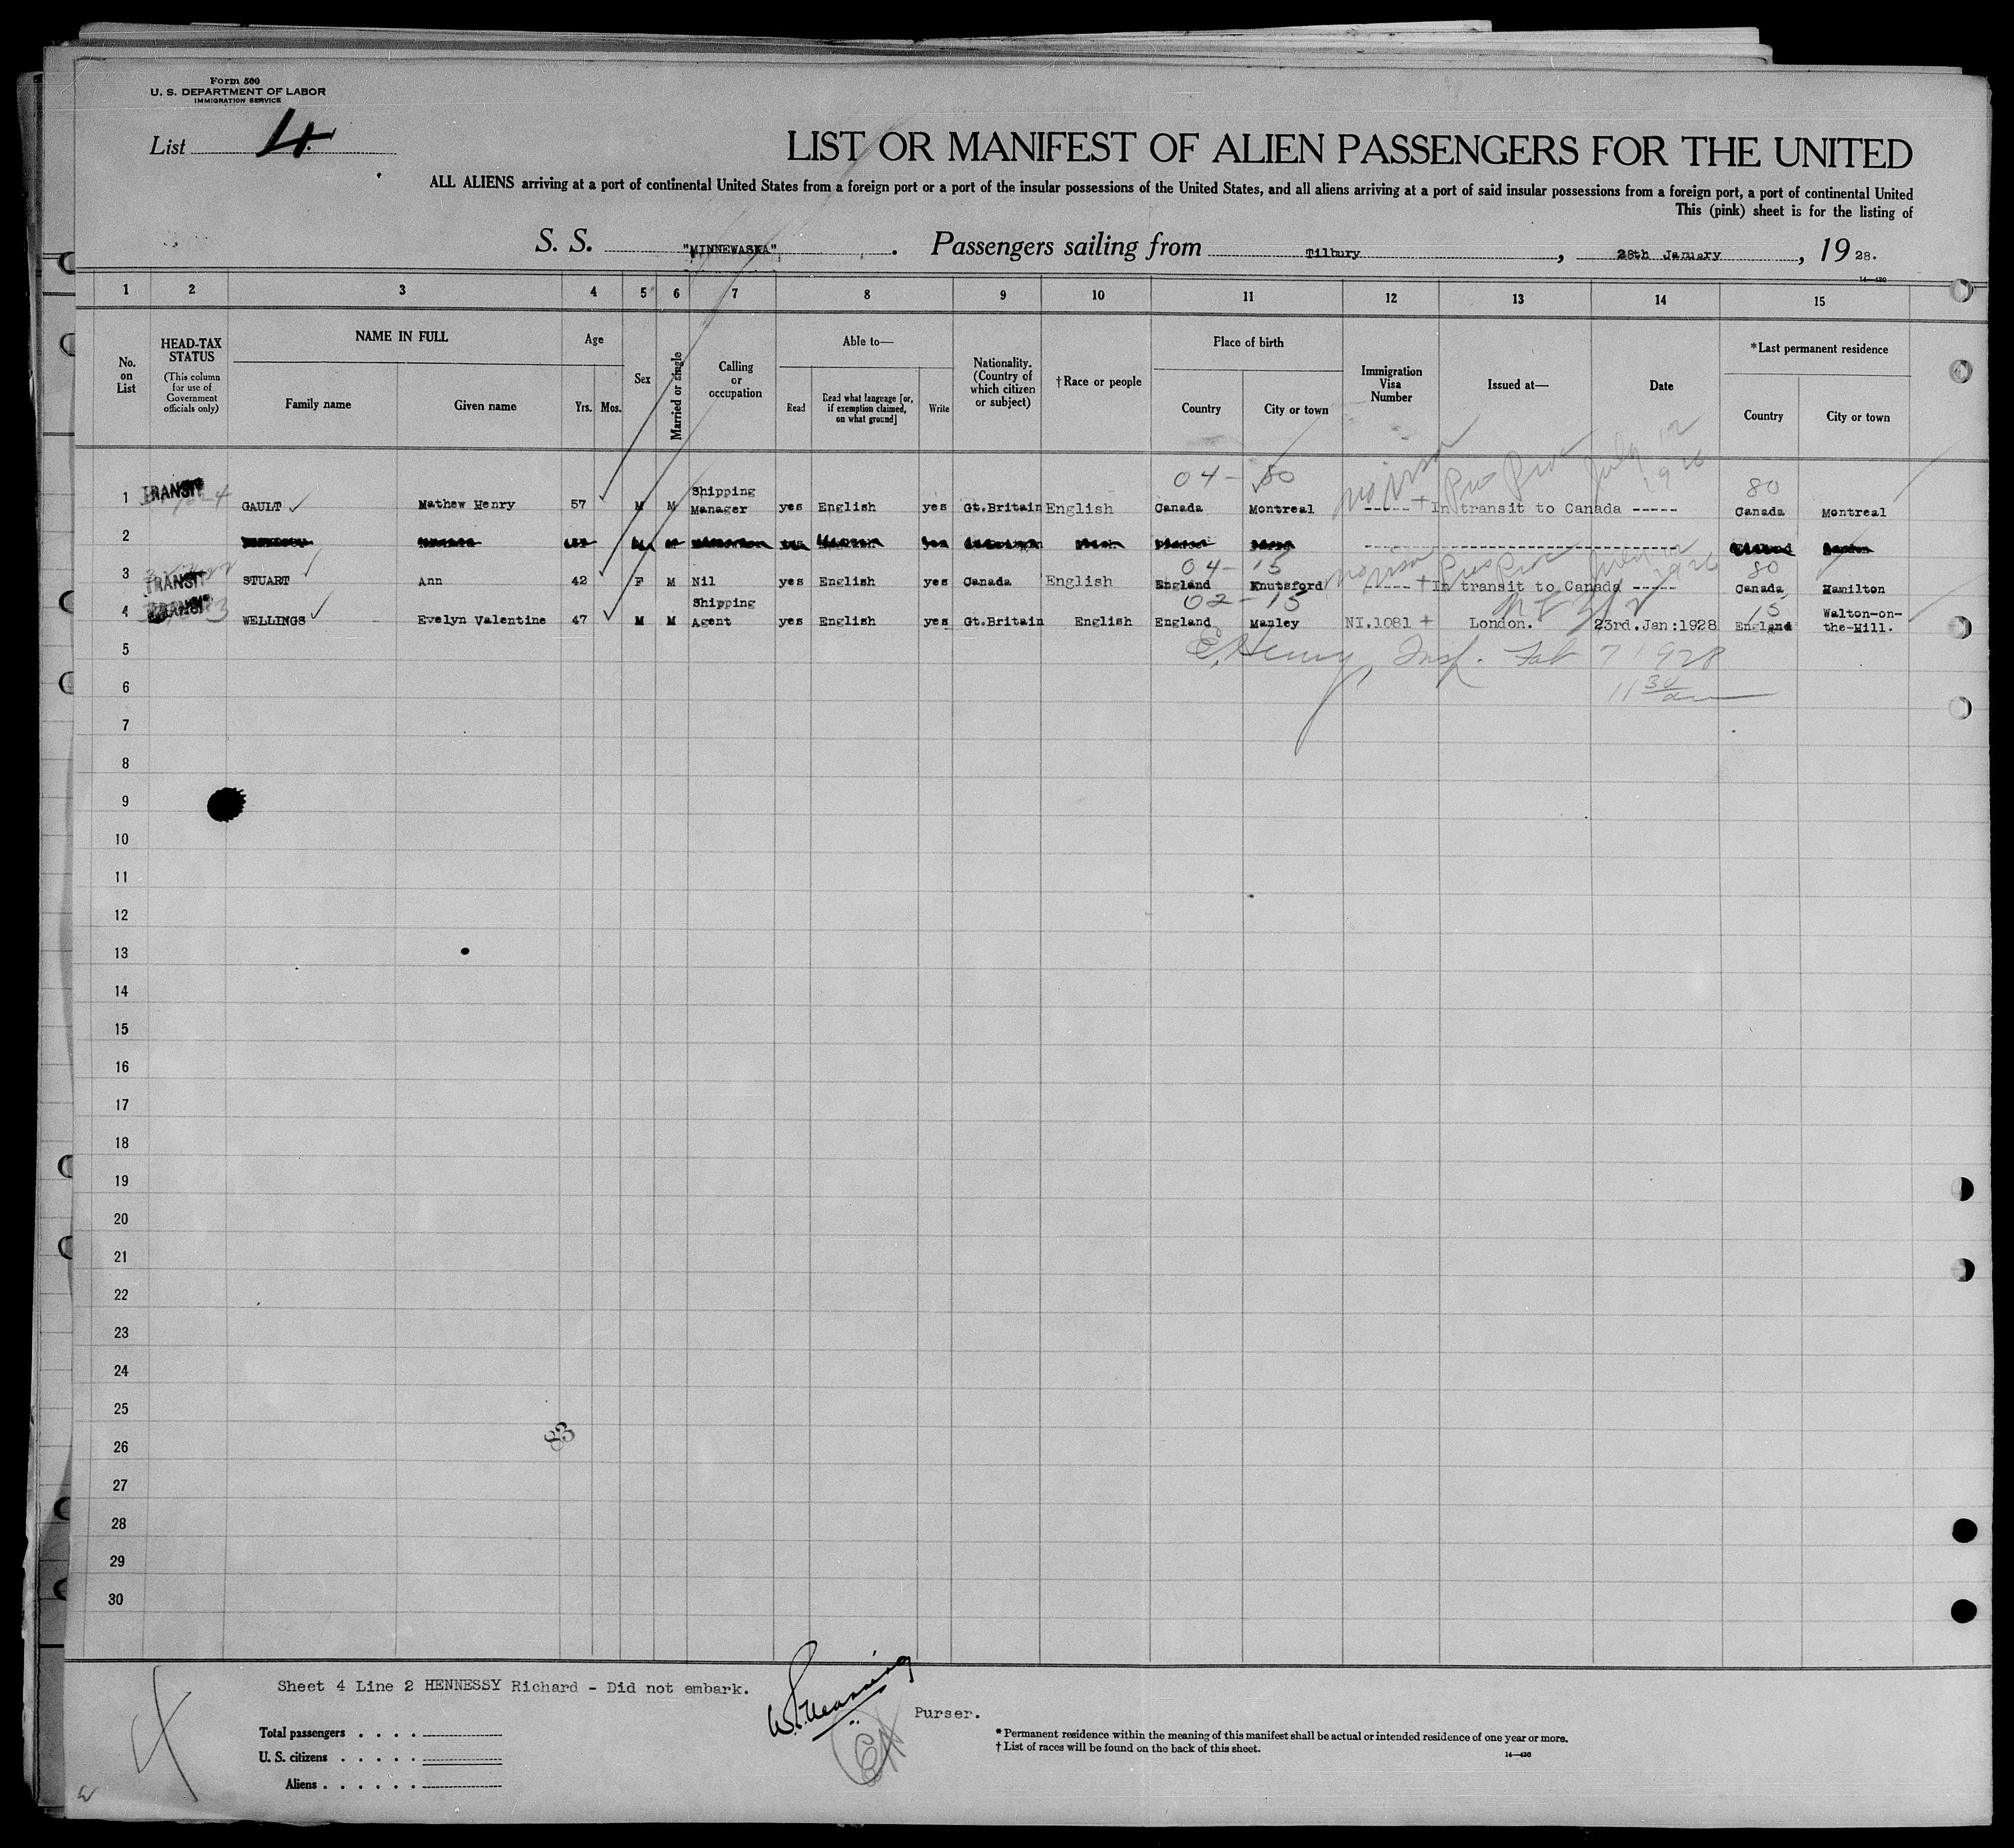 Form 500
U. S. DEPARTMENT OF LABOR
IMMIGRATION SERVICE
List 4
LIST OR MANIFEST OF ALIEN PASSENGERS FOR THE UNITED
ALL ALIENS arriving at a port of continental United States from a foreign port or a port of the insular possessions of the United States, and all aliens arriving at a port of said insular possessions from a foreign port, a port of continental United
This (pink) sheet is for the listing of
S. S. "MINNEWASKA". Passengers sailing from Tilbury, 28th January, 1928.
14—430
1 2 3 4 5 6 7 8 9 10 11 12 13 14 15
No. on List
HEAD-TAX STATUS (This column for use of Government officials only)
NAME IN FULL Family name Given name
Age Yrs. Mos.
Sex
Married or single
Calling or occupation
Able to— Read Read what language [or, if exemption claimed, on what ground] Write
Nationality. (Country of which citizen or subject)
†Race or people
Place of birth Country City or town
Immigration Visa Number
Issued at—
Date
*Last permanent residence Country City or town
04 - 80 No Visa July 12 1926 80
1 TRANSIT GAULT Mathew Henry 57 M M Shipping Manager yes English yes Gt.Britain English Canada Montreal ----- + In transit to Canada ----- Canada Montreal
2
04 - 15 No Visa 1926 80
3 TRANSIT STUART Ann 42 F M Nil yes English yes Canada English England Knutsford ----- + In transit to Canada ----- Canada Hamilton
02 - 15 15
4 TRANSIT WELLINGS Evelyn Valentine 47 M M Shipping Agent yes English yes Gt.Britain English England Manley NI.1081 + London. 23rd.Jan:1928 England Walton-on-the-Hill.
5 E. Henry, Insp. Feb 7 1928
6 11 30 am
7
8
9
10
11
12
13
14
15
16
17
18
19
20
21
22
23
24
25
83
26
27
28
29
30
Sheet 4 Line 2 HENNESSY Richard - Did not embark.
Purser.
Total passengers . . . .
U. S. citizens . . . . .
Aliens . . . . . .
* Permanent residence within the meaning of this manifest shall be actual or intended residence of one year or more.
† List of races will be found on the back of this sheet.
14—430